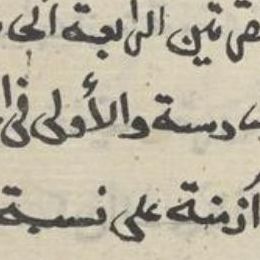 تين الرابعة الى
دسة والأولى فى
أزمنة على نسبة